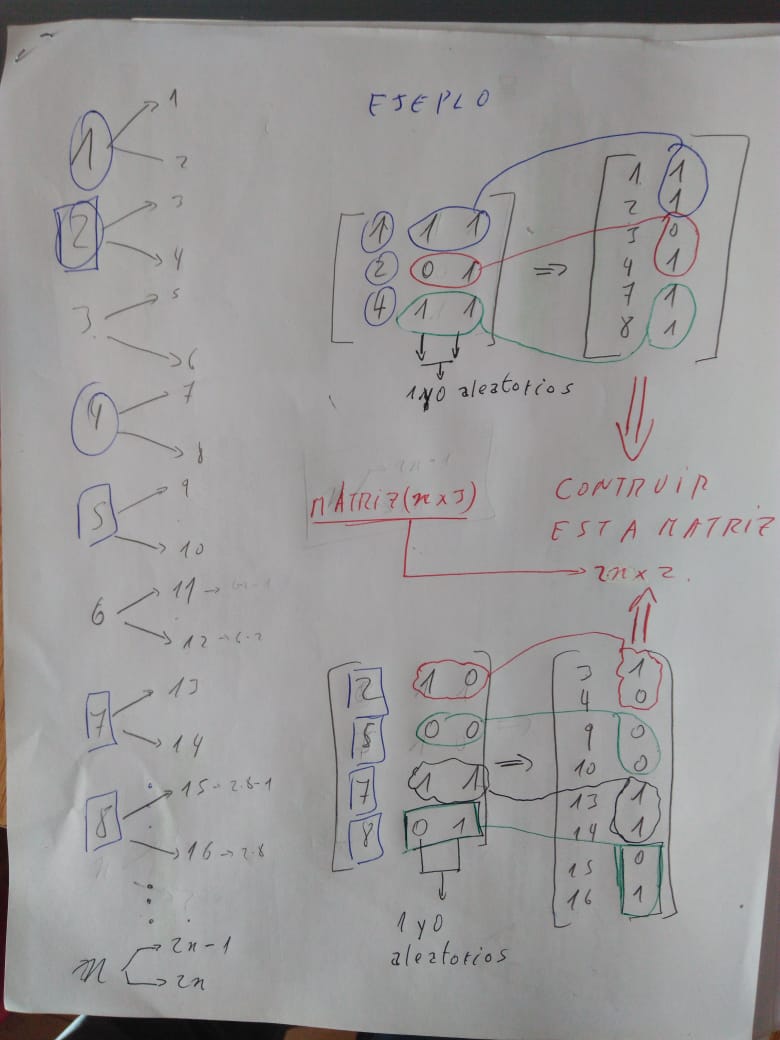 EJEPLO
1 → 1
→ 2
2 → 3
→ 4
3 → 5
→ 6
4 → 7
→ 8
5 → 9
→ 10
6 → 11
→ 12
7 → 13
→ 14
8 → 15 → 2·8-1
→ 16 → 2·8
n → 2n-1
→ 2n
1 1 1
2 0 1
4 1 1
1 y 0 aleatorios
⇒
1 1
2 1
3 0
4 1
7 1
8 1
MATRIZ(n x 3)
CONTRUIR
ESTA MATRIZ
2n x 2.
2 1 0
5 0 0
7 1 1
8 0 1
1 y 0
aleatorios
⇒
3 1
4 0
9 0
10 0
13 1
14 1
15 0
16 1